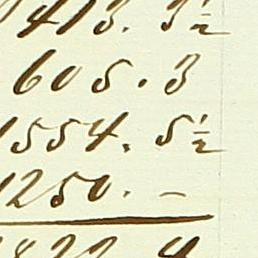 413. 3½
605. 3
1554. 5½
1250. –